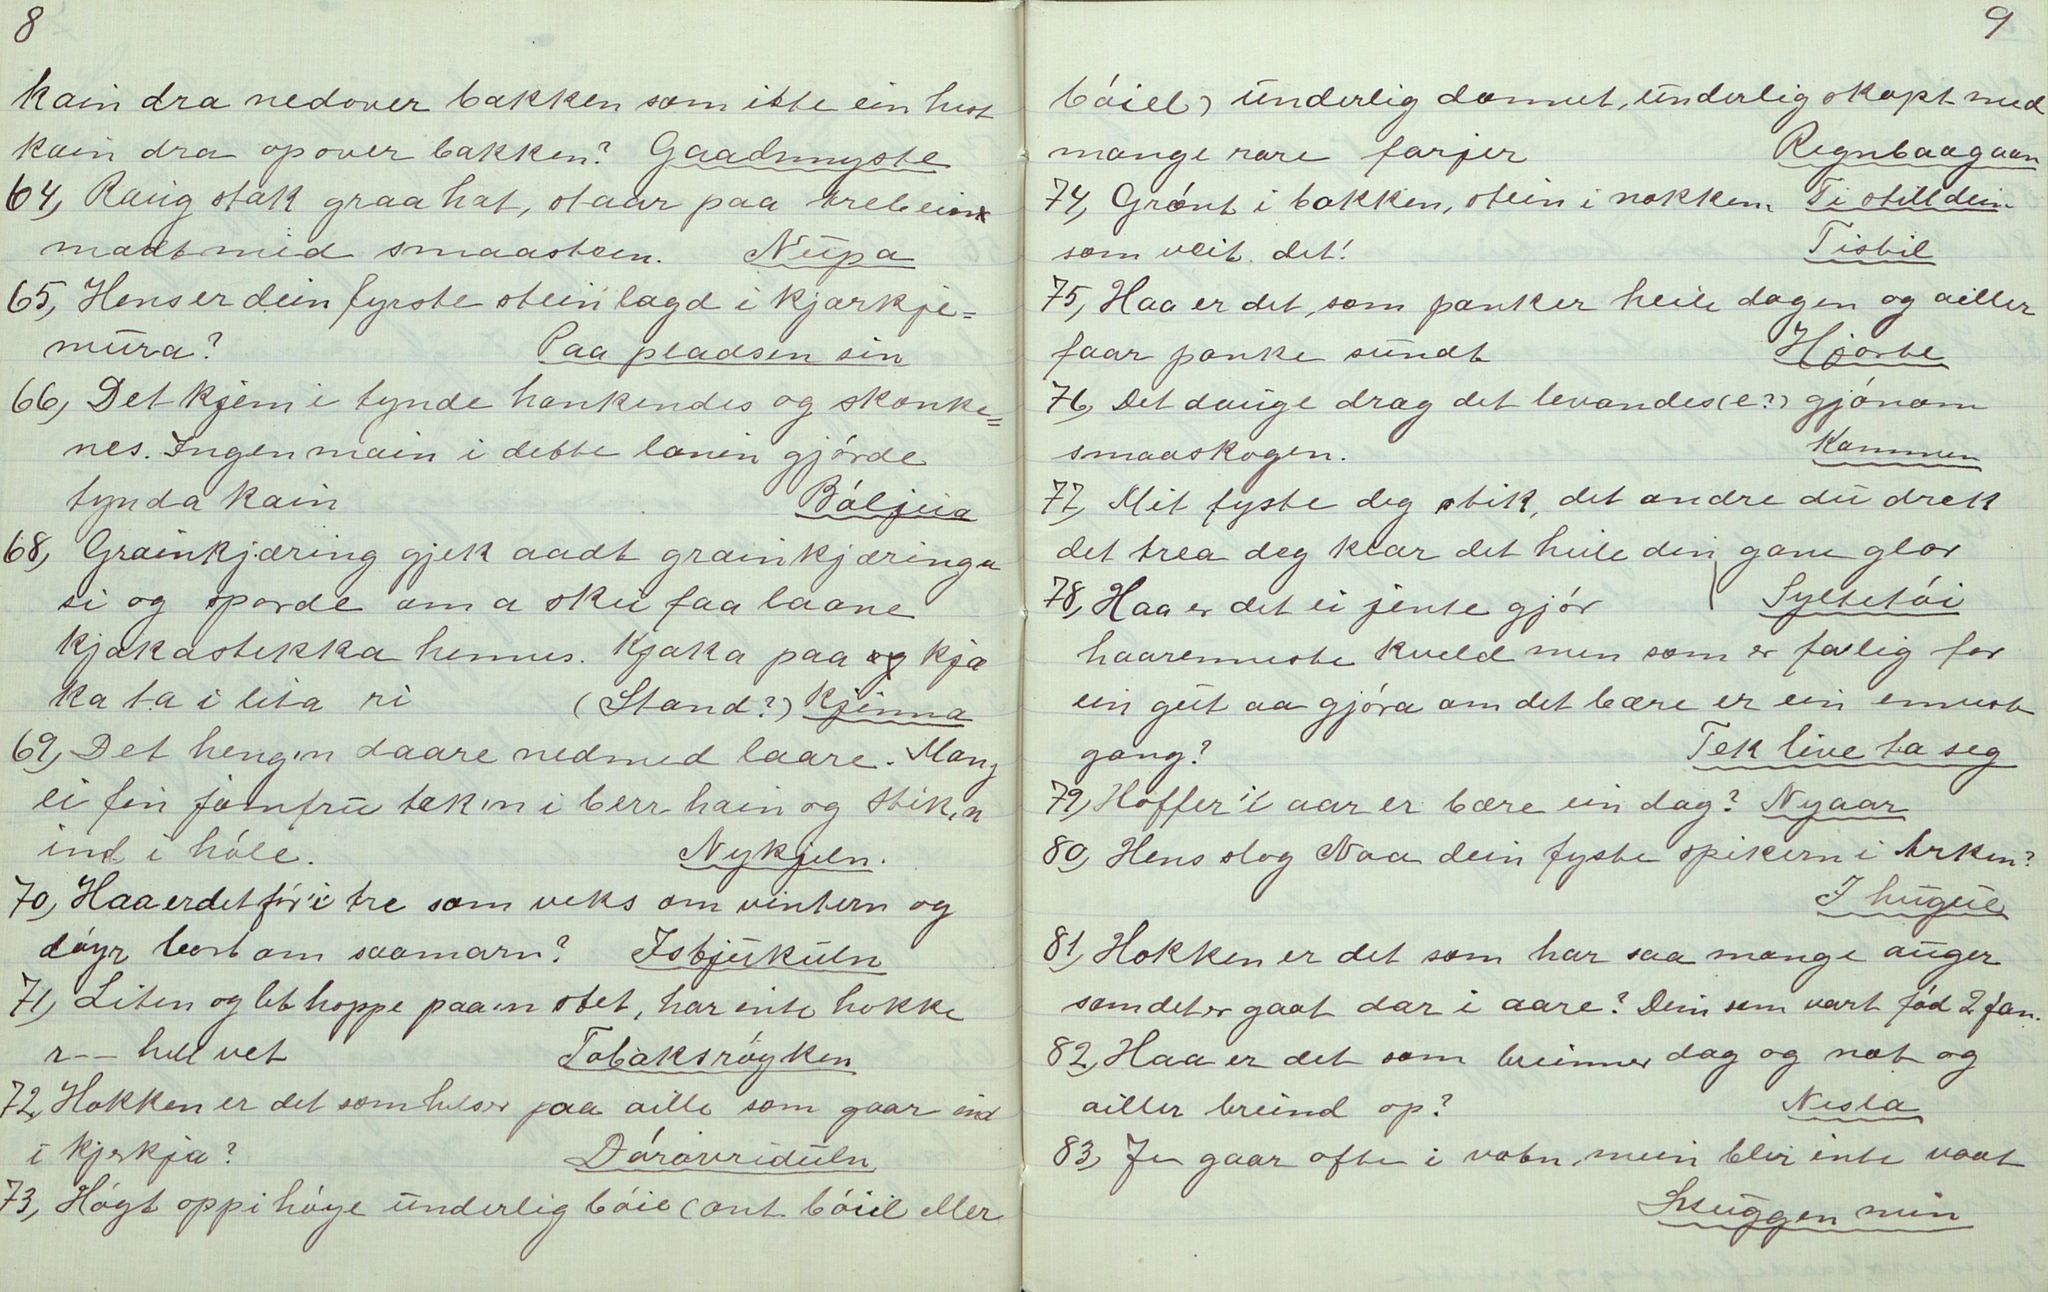 8
kain dra nedover bakken som itte ein hest
kain dra opover bakken? Gaadnnyste
64, Raug stak graa hat, staar paa trebein
madt med smaasteen. Nupa
65, Hens er dein fyrste stein lagd i kjærkje=
mura? Paa pladsen sin
66, Det kjem i tynde hankendes og skanke=
nes. Ingen main i dette lanin gjórde
tynda kain Bóljua
68, Grainkjæring gjek aadt grainkjæringa
si og sporde om a sku faa laane
kjakastikka hennes. Kjaka paa og kja
ka ta i lita ri (Stand?) Kjinna
69, Det heng'n daare nedmed laare. Mang
ei fin jomfru tek'n i berr hain og stik'n
ind i hóle. Nykjeln.
70, Haa er det fór i tre som veks om vintern og
dóyr bort om saamarn? Isbjukuln
71, Liten og let hoppe paa'n stet, har inte hokke
r-- hell vet Tobaksróyken
72, Hokken er det som helser paa aille som gaar ind
i kjerkja? Dóravriduln
73, Hógt oppi hóge underlig bóie (ant. bóiil eller
9
bóiel) underlig domnet, underlig skapt med
mange rare farjer Regnbaagaan
74, Grónt i bakken, stein i nakken. Ti still dein
som veit det! Tistil
75, Haa er det, som panker heile dagen og ailler
faar panke sundt Hjarte
76, Det dauge drag det levandes (e?) gjónom
smaaskogen. Kammen
77, Mit fyste deg stik, det andre du drak
det trea deg klar det heile din gane glar
78, Haa er det ei jente gjór Syltetói
haarenneste kveld men som er faelig for
ein gut aa gjóra om det bære er ein enneste
gang? Tek live ta seg
79, Hoffer i aar er bære ein dag? Nyaar
80, Hens slog Noa dein fyste spikern i Arken?
I hugue
81, Hokken er det som har saa mange auger
som det er gaat dar i aare? Dein som vart fód 2 jan.
82, Haa er det som breinner dag og nat og
ailler breind op? Nesla
83, Je gaar ofte i vatn, mein blir inte vaat
Skuggen min